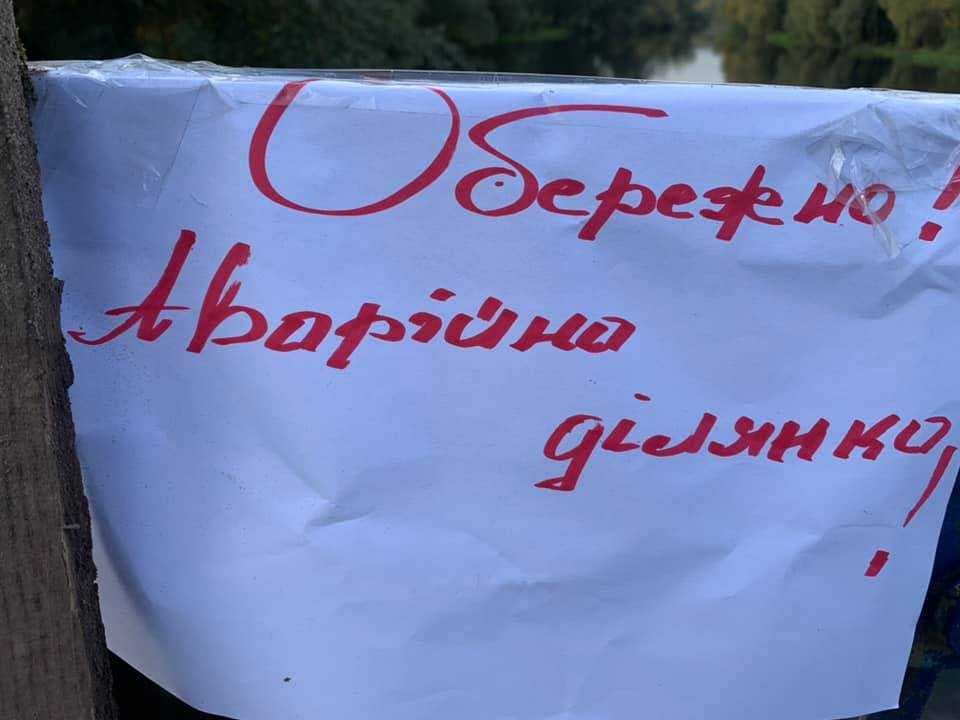 Обережно!
Аварійна
ділянка!